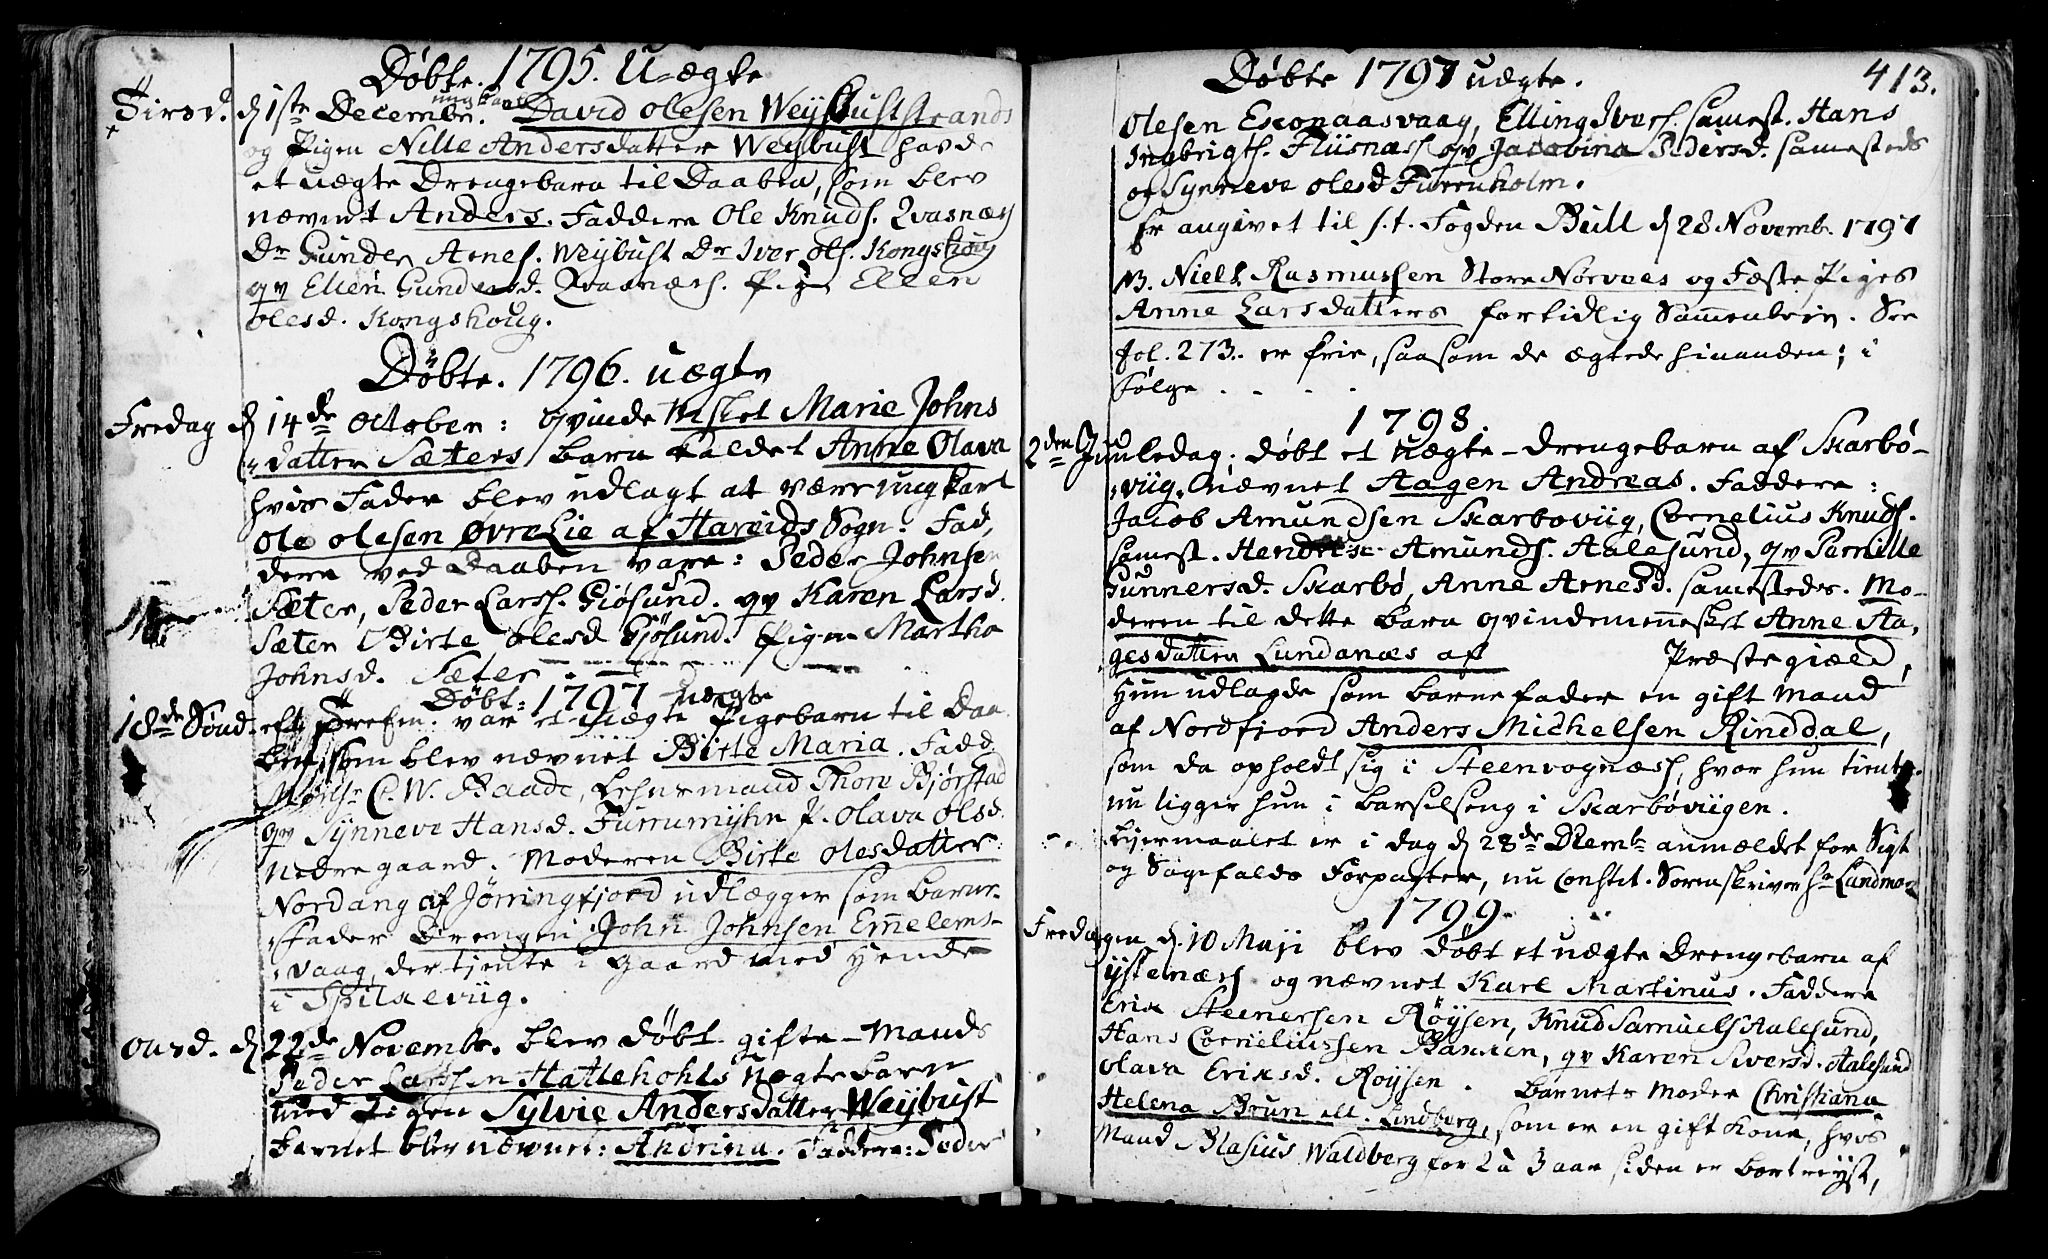 Døbte. 1795. Uægte
Tirsd. d 1ste Decembr. ungkarl David Olesen Weybust strands
og Pigen Nille Andersdatter Weybust havde
et uægte Drengebarn til Daaben, som blev
nævnt Anders. Faddere Ole Knuds. Qvasnæs
Dr Gunder Arnes. Weybust Dr Iver Ols. Kongshoug
qv Ellen Gundersd. Qvasnæss. Pig. Ellen
Olesd. Kongshoug.
Døbte. 1796. uægte
Fredag d 14de October: qvinde Marie Johns
datter Sæters barn kaldet Anne Olava
hvis Fader blev udlagt at være ungkarl
Ole Olesen Øvre Lie af Hareids Sogn. Fad,
dere ved Daaben vare: Peder Johnsen
Sæter, Peder Larss. Giøsund. qv Karen Larsd.
Sæter Birte Olesd Gjøsund. Pigen Martha
Johnsd. Sæter
Døbt: 1797 uægte
18de Sønd. eft var et uægte Pigebarn til Daa
ben, som blev nævnet Birte Maria. Fadd.
C. W. Baade, Lehnsmand Thore Bjørstad
qv Synneve Hansd. Furrumyhr P. Olava Olsd.
Nedregaard. Moderen Birte Olesdatter
Nordang af Jørringfjord udlægger som barne-
Fader Drengen John Johnsen Emelems-
vaag, der tjente i Gaard med hende
i Spilkeviig.
Onsd. d 22de Novembr. blev døbt gifte Mands
Peder Larssen Hattehohls uægte barn
med Pigen Sylvie Andersdatter Weybust
barnet blev nævnet: Andrina. Faddere: Peder
Døbte 1797 uægte. 413.
Olesen Exonaasvaag, Elling Ivers. samest. Hans
Ingbrigts. Fliisnæss qv Jacobina Pedersd. samesteds
og Synneve Olesd Furruholm.
Er angivet til s. t. Fogden Bull d 28 Novemb. 1797
NB. Niels Rasmussen Store Nørvees og Fæste Piges
Anne Larsdatters fortidlig Sammenleie. See
Fol. 273. er frie, saasom de ægtede hinanden; i
Følge . . . .
1798.
2den Juuledag. døbt et uægte-drengebarn af Skarbø-
viig. nævnet Aagen Andreas. Faddere:
Jacob Amundsen Skarboviig, Cornelius Knuds.
samest. Amunds. Aalesund, qv Pernille
Gunnersd. Skarbø, Anne Arnesd. samesteds. Mo-
deren til dette barn qvindemennesket Anne Aa,
gesdatter Lundanæs af Præstegield,
Hun udlagde som barnefader en gift Mand
af Nordfiord Anders Michelsen Rinddal,
som da opholdt sig i Steenvognæss, hvor hun tiente.
nu ligger hun i barselseng i Skarbøviigen.
Leyermaalet er i dag d 28de Decemb. anmeldet for Sigt
og Sagefalds Forpagter, nu Constit. Sorenskriver Hr Landmar
1799.
Fredagen d. 10 Maji blev døbt et uægte drengebarn af
Ystenæss og nævnet Karl Martinus. Faddere
Erik Steenersen Røysen, Knud Samuels Aalesund,
Hans Corneliussen Bakken, qv Karen Siversd. Aalesund
Olava Eriksd. Røysen. Barnets Moder Christiana
Helena Brun ell. Lindberg, som er en gift kone, hvis
Mand Blasius Waldberg for 2 à 3 aar siden er bortreyst,